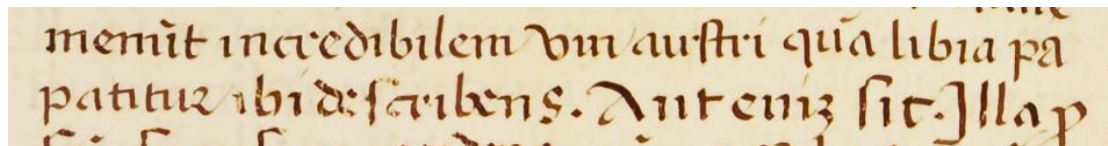 menūt incredibilem vim austri quā libia pa
patitur ibi describens. Aut enīz sic. Illa ꝑ